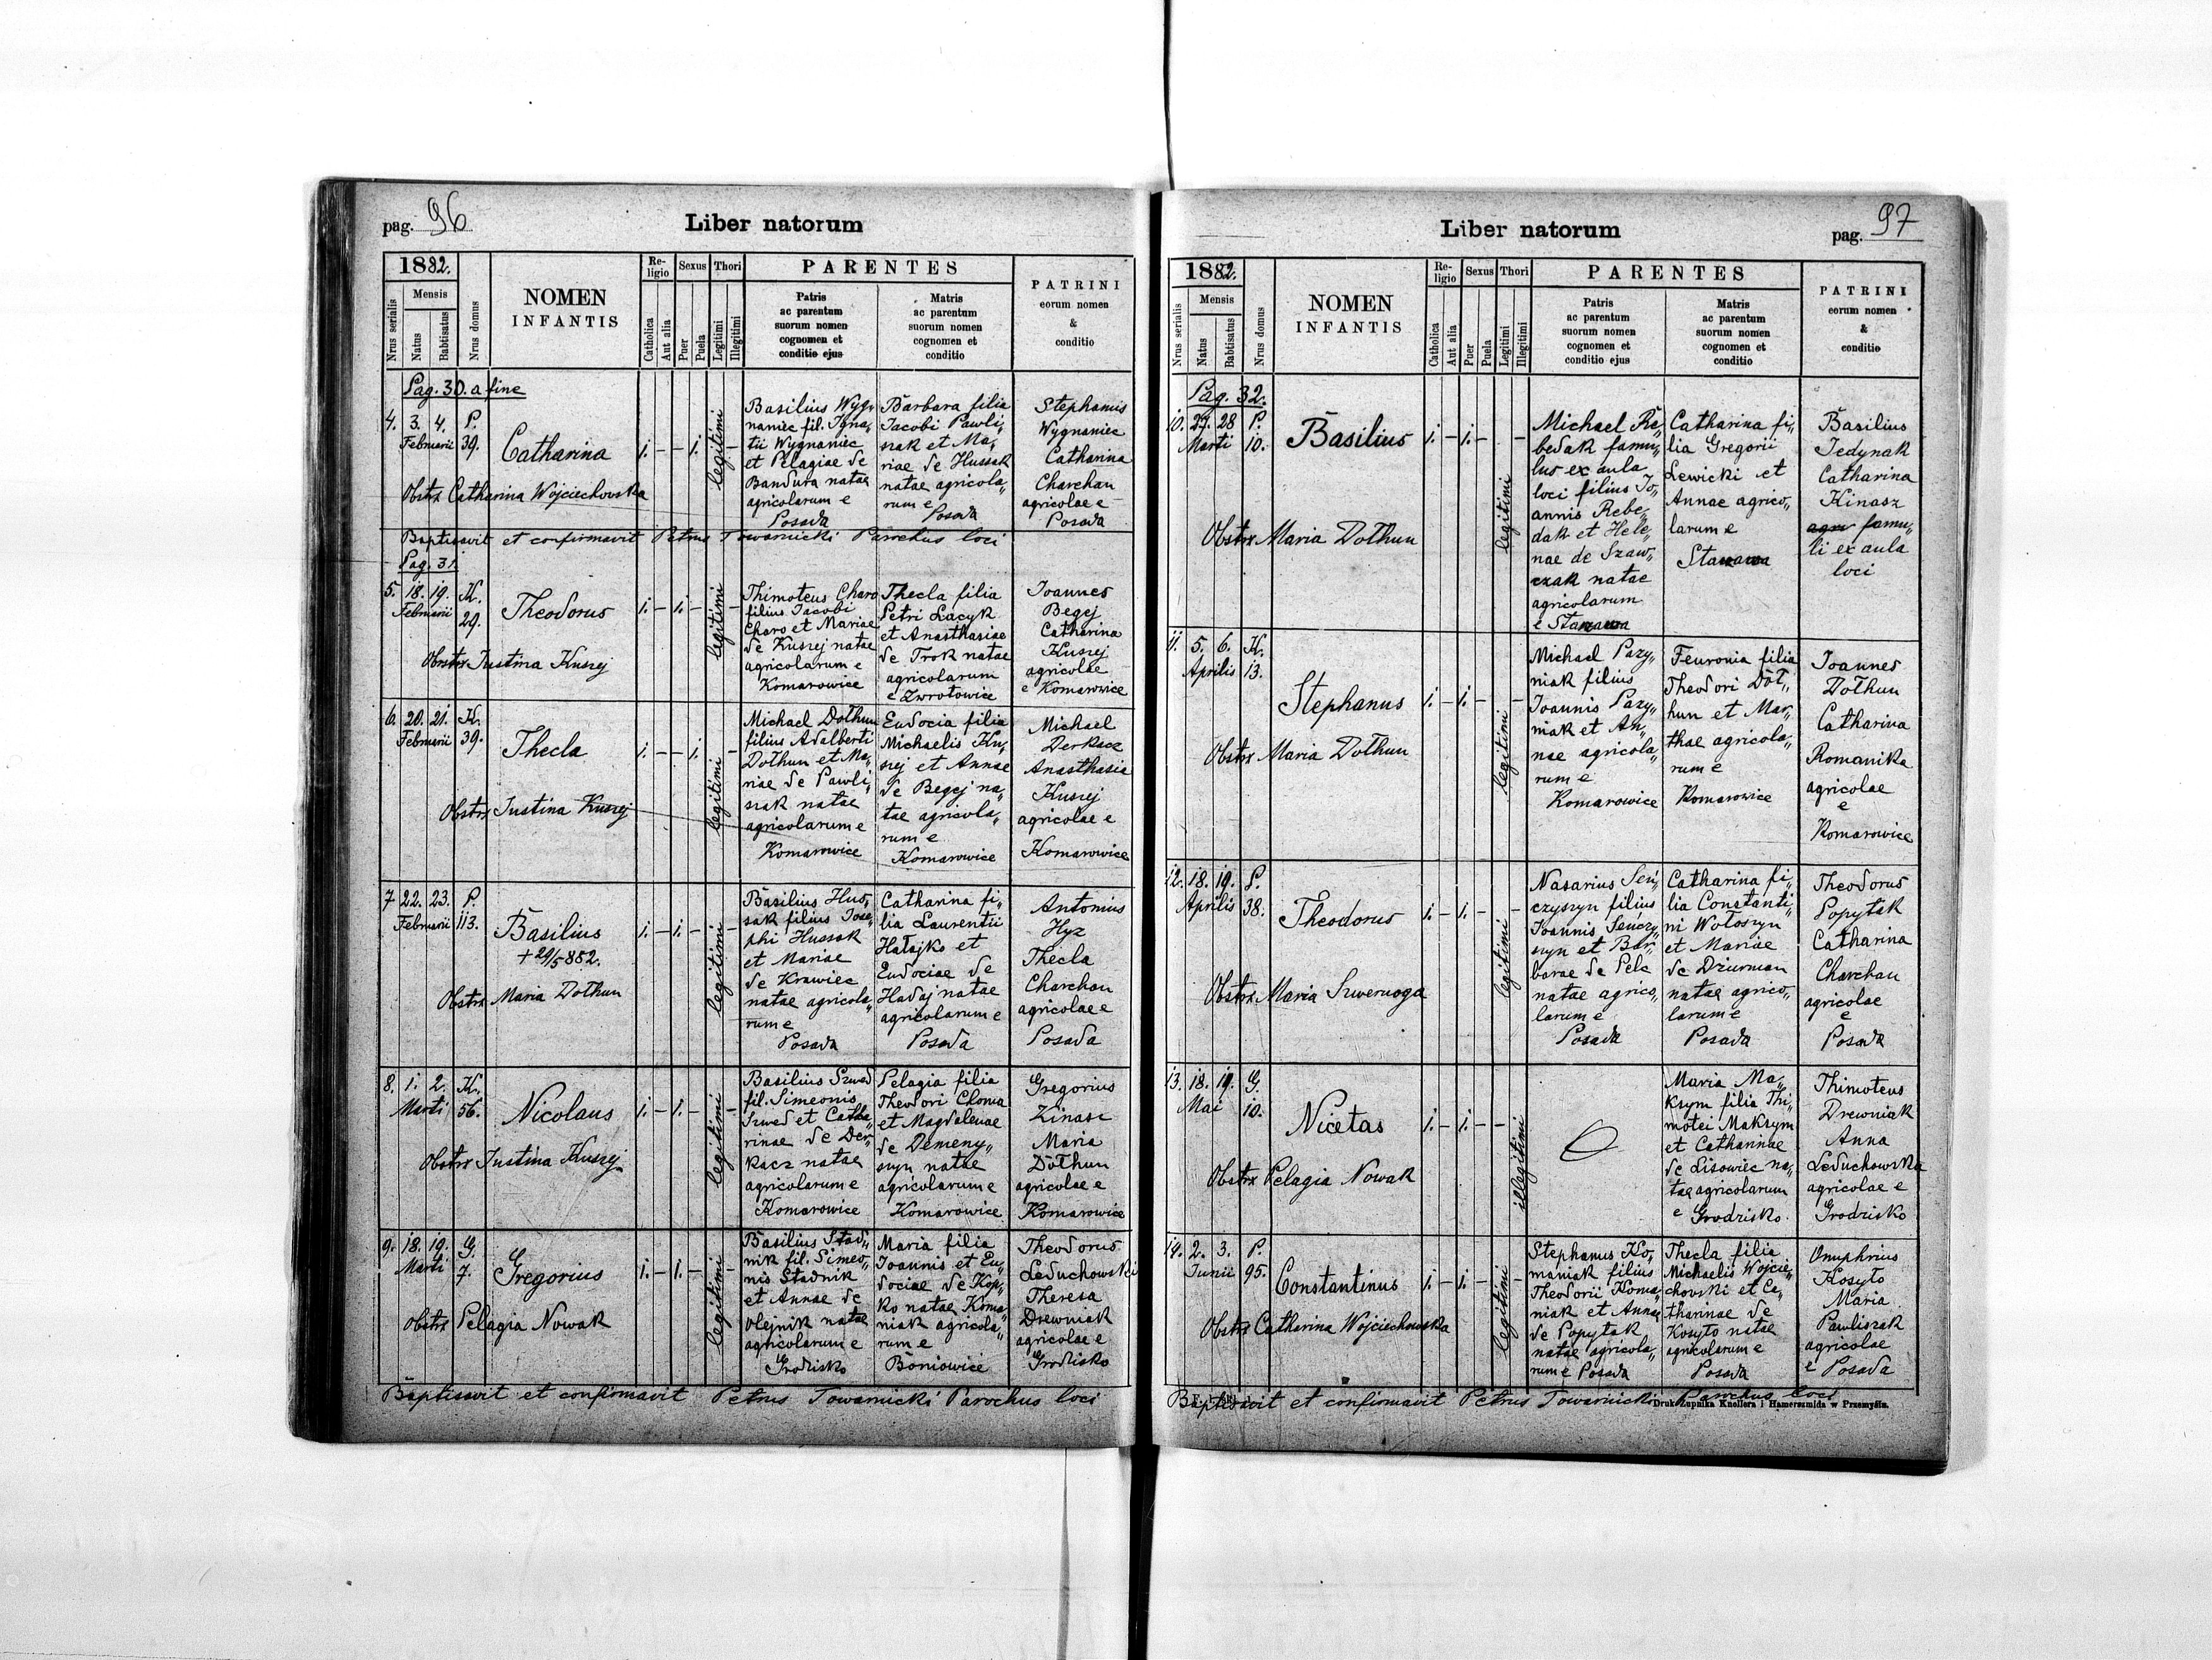 pag. 96
Liber natorum
1882.
Nrus serialis
Mensis
Natus
Babtisatus
Nrus domus
NOMEN
INFANTIS
Re-
ligio
Catholica
Aut alia
Sexus
Puer
Puela
Thori
Legitimi
Illegitimi
PARENTES
Patris
ac parentum
suorum nomen
cognomen et
conditio ejus
Matris
ac parentum
suorum nomen
cognomen et
conditio
PATRINI
eorum nomen
&
conditio
Pag. 30. a fine
4. 3. 4. P.
Februarii 39.
Catharina
1. – – 1. legitimi –
Obstx Catharina Wojciechowska
Basilius Wyg„
naniec fil. Igna„
tii Wygnaniec
et Pelagiae de
Bandura natae
agricolarum e
Posada
Barbara filia
Jacobi Pawli„
szak et Ma„
riae de Hussak
natae agricola„
rum e
Posada
Stephanus
Wygnaniec
Catharina
Charchan
agricolae e
Posada
Baptisavit et confirmavit Petrus Towarnicki Parochus loci
Pag. 31.
5. 18. 19. K.
Februarii 29.
Theodorus
1. – 1. – legitimi –
Obstx Justina Kuszej
Thimoteus Charo
filius Jacobi
Charo et Mariae
de Kuszej natae
agricolarum e
Komarowice
Thecla filia
Petri Łacyk
et Anasthasiae
de Trok natae
agricolarum
e Zwrotowice
Joannes
Begej
Catharina
Kuszej
agricolae
e Komarowice
6. 20. 21. K.
Februarii 39.
Thecla
1. – – 1. legitimi –
Obstx Justina Kuszej
Michael Dołhun
filius Adalberti
Dołhun et Ma„
riae de Pawli„
szak natae
agricolarum e
Komarowice
Eudocia filia
Michaelis Ku„
szej et Annae
de Begej na„
tae agricola„
rum e
Komarowice
Michael
Derkacz
Anasthasia
Kuszej
agricolae e
Komarowice
7 22. 23. P.
Februarii 113.
Basilius
+ 29/5 882.
1. – 1. – legitimi –
Obstx Maria Dołhun
Basilius Hus„
sak filius Jose„
phi Hussak
et Mariae
de Krawiec
natae agricola„
rum e
Posada
Catharina fi„
lia Laurentii
Hałajko et
Eudociae de
Hadaj natae
agricolarum e
Posada
Antonius
Hyz
Thecla
Charchan
agricolae e
Posada
8. 1. 2. K.
Marti 56.
Nicolaus
1. – 1. – legitimi –
Obstx Justina Kuszej
Basilius Szwed
fil. Simeonis
Szwed et Catha„
rinae de Der„
kacz natae
agricolarum e
Komarowice
Pelagia filia
Theodori Choma
et Magdalenae
de Demeny„
szyn natae
agricolarum e
Komarowice
Gregorius
Kinasz
Maria
Dołhun
agricolae e
Komarowice
9. 18. 19. G.
Marti 7.
Gregorius
1. – 1. – legitimi –
Obstx Pelagia Nowak
Basilius Stad„
nik fil. Simeo„
nis Stadnik
et Annae de
Olejnik natae
agricolarum e
Grodzisko
Maria filia
Joannis et Eu„
dociae de Kop„
ko natae Koma„
niak agricola„
rum e
Boniowice
Theodorus
Leduchowski
Theresa
Drewniak
agricolae e
Grodzisko
Baptisavit et confirmavit Petrus Towarnicki Parochus loci
Liber natorum
pag. 97
1882.
Nrus serialis
Mensis
Natus
Babtisatus
Nrus domus
NOMEN
INFANTIS
Re-
ligio
Catholica
Aut alia
Sexus
Puer
Puela
Thori
Legitimi
Illegitimi
PARENTES
Patris
ac parentum
suorum nomen
cognomen et
conditio ejus
Matris
ac parentum
suorum nomen
cognomen et
conditio
PATRINI
eorum nomen
&
conditio
Pag. 32.
10. 27. 28 P.
Marti 10.
Basilius
1. – 1. – legitimi –
Obstx Maria Dołhun
Michael Re„
bedak famu„
lus ex aula
loci filius Jo„
annis Rebe„
dak et Hele„
nae de Szaw„
czak natae
agricolarum
e Starzawa
Catharina fi„
lia Gregorii
Lewicki et
Annae agrico„
larum e
Starzawa
Basilius
Jedynak
Catharina
Kinasz
agr famu„
li ex aula
loci
11. 5. 6. K.
Aprilis 13.
Stephanus
1. – 1. – legitimi –
Obstx Maria Dołhun
Michael Pazy„
niak filius
Joannis Pazy„
niak et An„
nae agricola„
rum e
Komarowice
Feuronia filia
Theodori Doł„
hun et Mar„
thae agricola„
rum e
Komarowice
Joannes
Dołhun
Catharina
Romanika
agricolae
e
Komarowice
12. 18. 19. P.
Aprilis 38.
Theodorus
1. – 1. – legitimi –
Obstx Maria Szweruoga
Nasarius Sen„
czyszyn filius
Joannis Senczy„
szyn et Bar„
barae de Pelc
natae agrico„
larum e
Posada
Catharina fi„
lia Constanti„
ni Wołoszyn
et Mariae
de Dziurman
natae agrico„
larum e
Posada
Theodorus
Popytak
Catharina
Charchan
agricolae
e
Posada
13. 18. 19. G.
Mai 10.
Nicetas
1. – 1. – – illegitimi
Obstx Pelagia Nowak
Maria Ma„
ksym filia Thi„
motei Maksym
et Catharinae
de Lisowiec na„
tae agricolarum
e Grodzisko
Thimoteus
Drewniak
Anna
Leduchowska
agricolae e
Grodzisko
14. 2. 3. P.
Junii 95.
Constantinus
1. – 1. – legitimi –
Obstx Catharina Wojciechowska
Stephanus Ko„
maniak filius
Theodorii Koma„
niak et Annae
de Popytak
natae agricola„
rum e Posada
Thecla filia
Michaelis Wojcie„
chowski et Ca„
tharinae de
Kosyło natae
agricolarum e
Posada
Onuphrius
Kosyło
Maria
Pawliszak
agricolae
e Posada
Baptisavit et confirmavit Petrus Towarnicki Parochus loci
Druk Żupnika Knollera i Hamerszmida w Przemyślu.